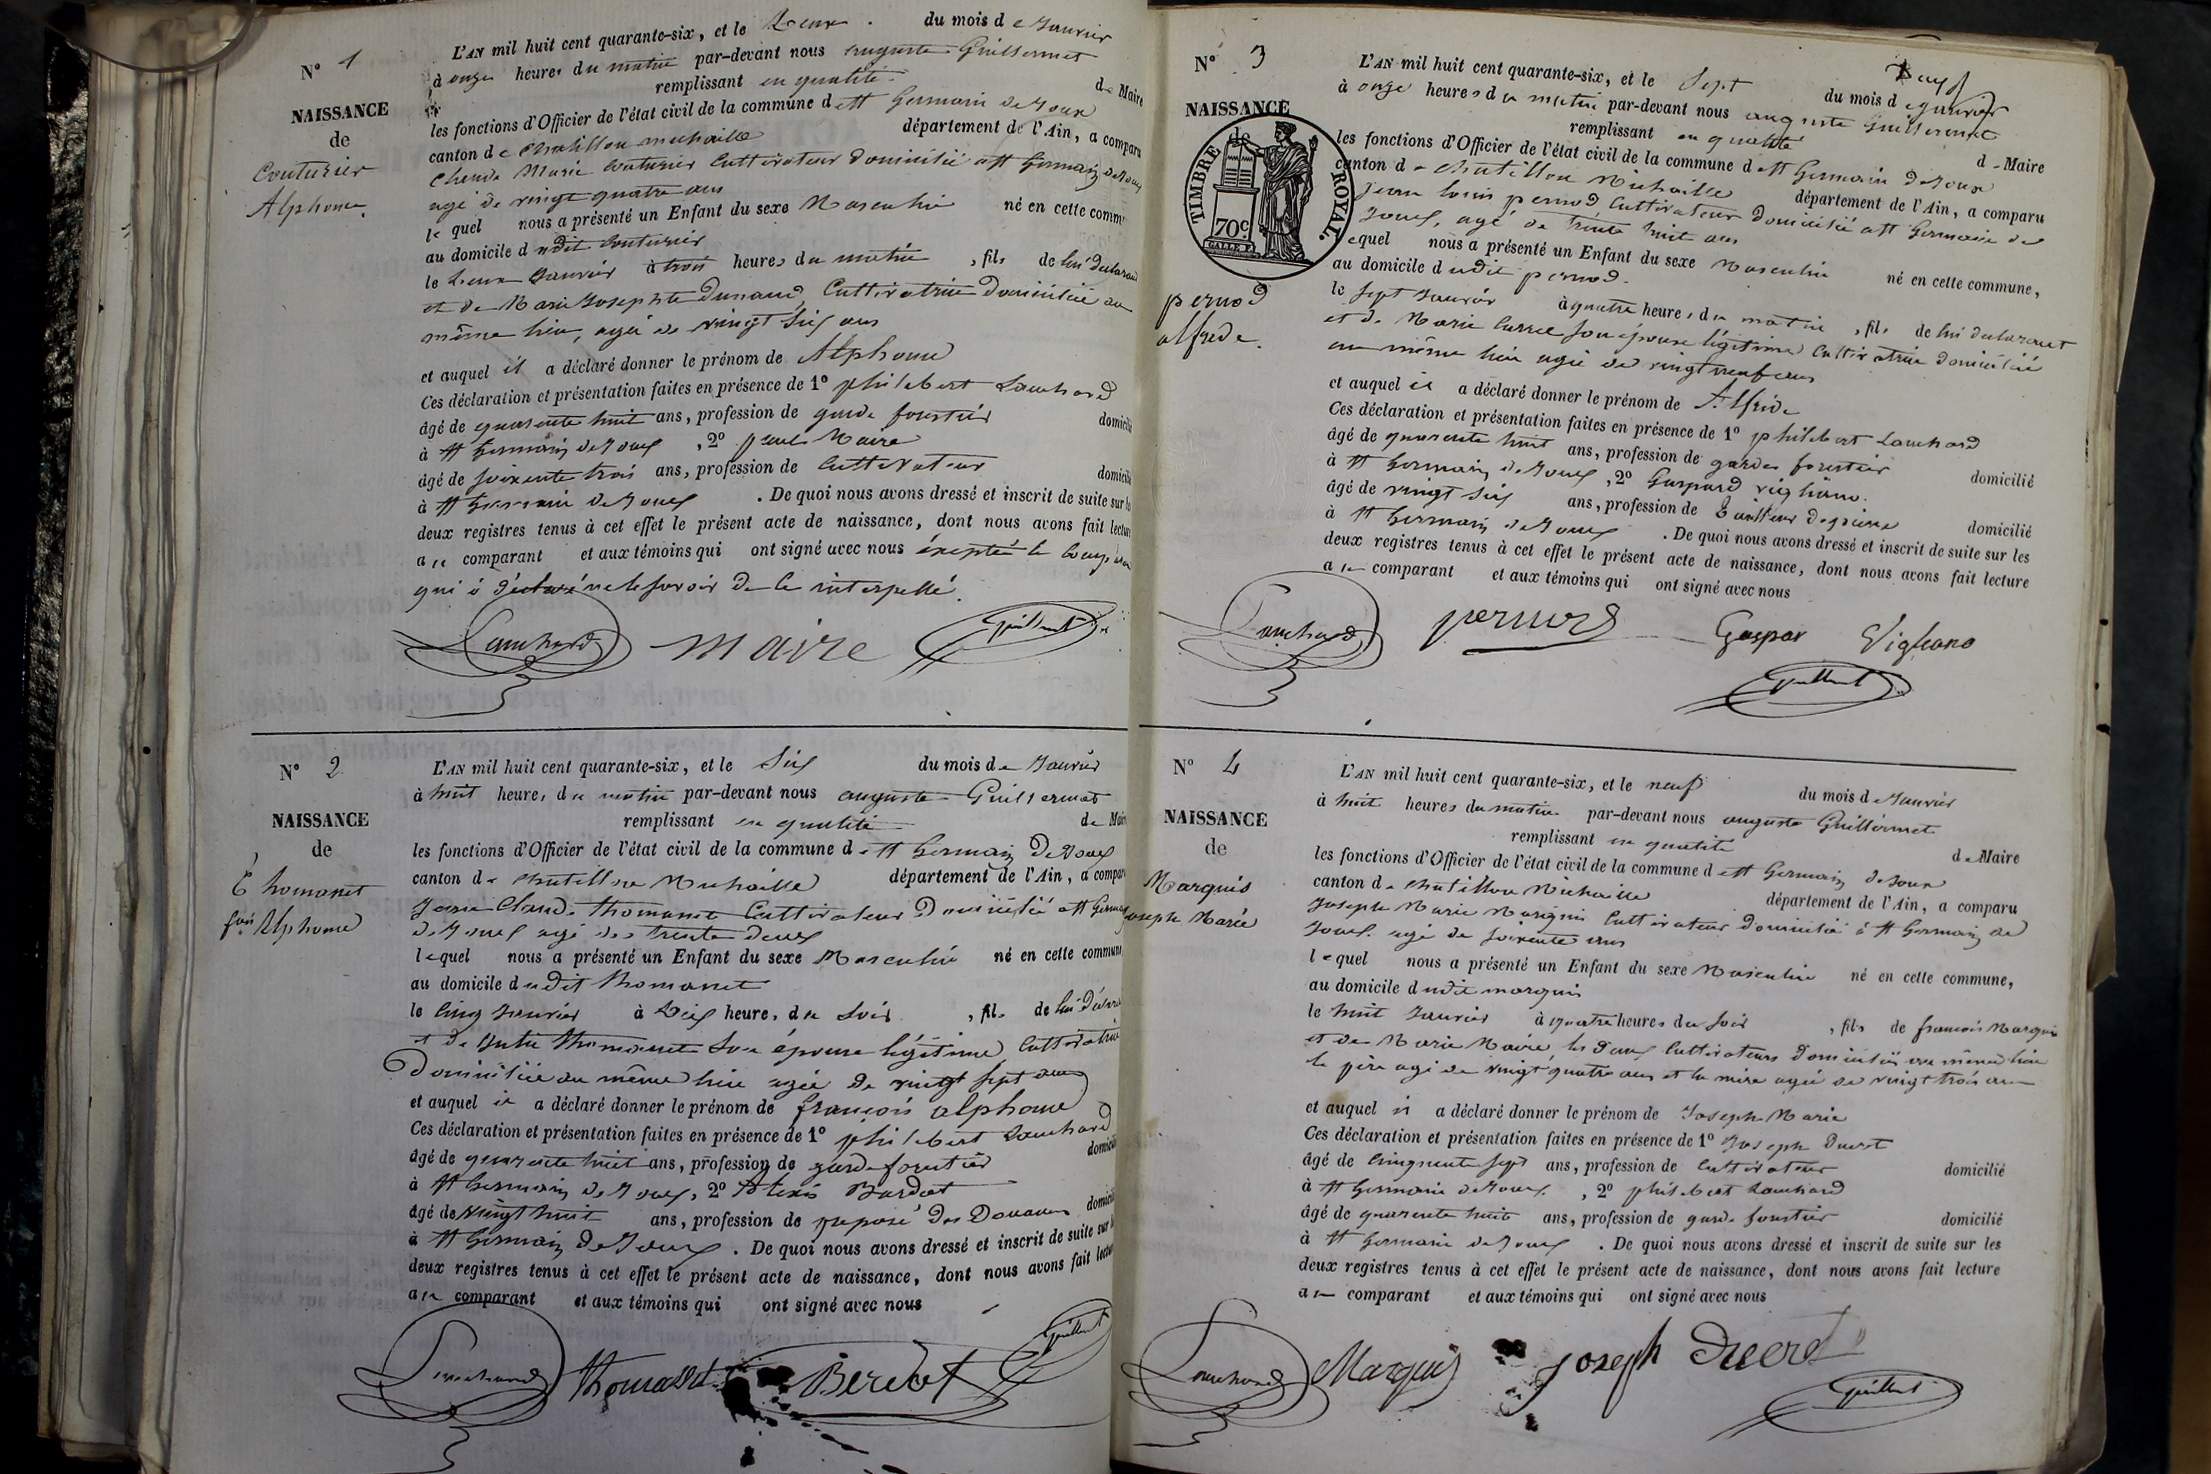 N° 1
NAISSANCE
de
Couturier
Alphonse.
L'AN mil huit cent quarante-six, et le Deux du mois de Janvier
à onze heures du matin par-devant nous auguste Guillermet
remplissant en qualité de Maire
les fonctions d'Officier de l'état civil de la commune de St Germain de Joux
canton de Chatillon michaille département de l'Ain, a comparu
Marie Couturier Cultivateur Domicilié à St Germain de Joux
agé de vingt quatre ans
lequel nous a présenté un Enfant du sexe Masculin né en cette commune
au domicile dudit Couturier
le Deux Janvier à trois heures du matin, fils de lui déclarant
et de Marie Josephte Dunand, Cultivatrice Domiciliée au
même lieu, agée de vingt six ans
et auquel il a déclaré donner le prénom de Alphonse
Ces déclaration et présentation faites en présence de 1° philibert Lanchard
âgé de quarente huit ans, profession de garde forestier domicilié
à St Germain de Joux, 2° paul Maire
âgé de soixente trois ans, profession de Cultivateur domicilié
à St Germain de Joux. De quoi nous avons dressé et inscrit de suite sur les
deux registres tenus à cet effet le présent acte de naissance, dont nous avons fait lecture
au comparant et aux témoins qui ont signé avec nous éxepté le Comparant
qui à déclaré ne le savoir de ce interpellé.
Lanchard Maire Guillermet
N° 2
NAISSANCE
de
Thomasset
fois Alphonse
L'AN mil huit cent quarante-six, et le Six du mois de Janvier
à huit heures du matin par-devant nous auguste Guillermet
remplissant en qualité de Maire
les fonctions d'Officier de l'état civil de la commune de St Germain De Joux
canton de Chatillon Michaille département de l'Ain, a comparu
Jean Claude Thomasset Cultivateur Domicilié à St Germain
de Joux agé de trente deux
lequel nous a présenté un Enfant du sexe Masculin né en cette commune,
au domicile dudit Thomasset
le Cinq Janvier à Dix heures du Soir, fils de lui Déclarant
et de Thomasset Son épouse légitime, Cultivatrice
Domiciliée au même lieu agée de vingt sept ans
et auquel il a déclaré donner le prénom de françois alphonse
Ces déclaration et présentation faites en présence de 1° philibert Lanchard
âgé de quarente huit ans, profession de garde forestier domicilié
à St Germain de Joux, 2° Alexis Berdet
âgé de vingt huit ans, profession de préposé Des Douanes domicilié
à St Germain De Joux. De quoi nous avons dressé et inscrit de suite sur les
deux registres tenus à cet effet le présent acte de naissance, dont nous avons fait lecture
au comparant et aux témoins qui ont signé avec nous
Lanchard Thomasset Berdet Guillermet
N° 3
NAISSANCE
de
TIMBRE ROYAL.
70c
pernod
alfrede.
L'AN mil huit cent quarante-six, et le Sept du mois de janvier
à onze heures du matin par-devant nous auguste Guillermet
remplissant en qualité de Maire
les fonctions d'Officier de l'état civil de la commune de St Germain de Joux
canton de Chatillon Michaille département de l'Ain, a comparu
Jean louis pernod Cultivateur Domicilié à St Germain de
Joux, agé de trente huit ans
lequel nous a présenté un Enfant du sexe Masculin né en cette commune,
au domicile dudit pernod.
le Sept Janvier à quatre heures du matin, fils de lui déclarant
et de Marie Son épouse légitime Cultivatrice domiciliée
au même lieu agée de vingt neuf ans
et auquel il a déclaré donner le prénom de Alfrede
Ces déclaration et présentation faites en présence de 1° philibert Lanchard
âgé de quarente huit ans, profession de garde forestier domicilié
à St Germain de Joux, 2° Gaspard vigliano.
âgé de vingt six ans, profession de Tailleur de pierre domicilié
à St Germain de Joux. De quoi nous avons dressé et inscrit de suite sur les
deux registres tenus à cet effet le présent acte de naissance, dont nous avons fait lecture
au comparant et aux témoins qui ont signé avec nous
Lanchard pernod Gaspar Vigliano
Guillermet
N° 4
NAISSANCE
de
Marquis
Joseph Marie
L'AN mil huit cent quarante-six, et le neuf du mois de Janvier
à huit heures du matin par-devant nous auguste Guillermet
remplissant en qualité de Maire
les fonctions d'Officier de l'état civil de la commune de St Germain de Joux
canton de Chatillon Michaille département de l'Ain, a comparu
Joseph Marie Marquis Cultivateur Domicilié à St Germain de
Joux. agé de soixente ans
lequel nous a présenté un Enfant du sexe Masculin né en cette commune,
au domicile dudit marquis
le huit Janvier à quatre heures du Soir, fils de françois Marquis
et de Marie Maire, les deux Cultivateurs Domiciliés au même lieu
le père agé de vingt quatre ans et la mère agée de vingt trois ans
et auquel il a déclaré donner le prénom de Joseph Marie
Ces déclaration et présentation faites en présence de 1° Joseph Ducret
âgé de Cinquente sept ans, profession de Cultivateur domicilié
à St Germain de Joux, 2° philibert Lanchard
âgé de quarente huit ans, profession de garde forestier domicilié
à St Germain de Joux. De quoi nous avons dressé et inscrit de suite sur les
deux registres tenus à cet effet le présent acte de naissance, dont nous avons fait lecture
au comparant et aux témoins qui ont signé avec nous
Lanchard Marquis Joseph Ducret
Guillermet